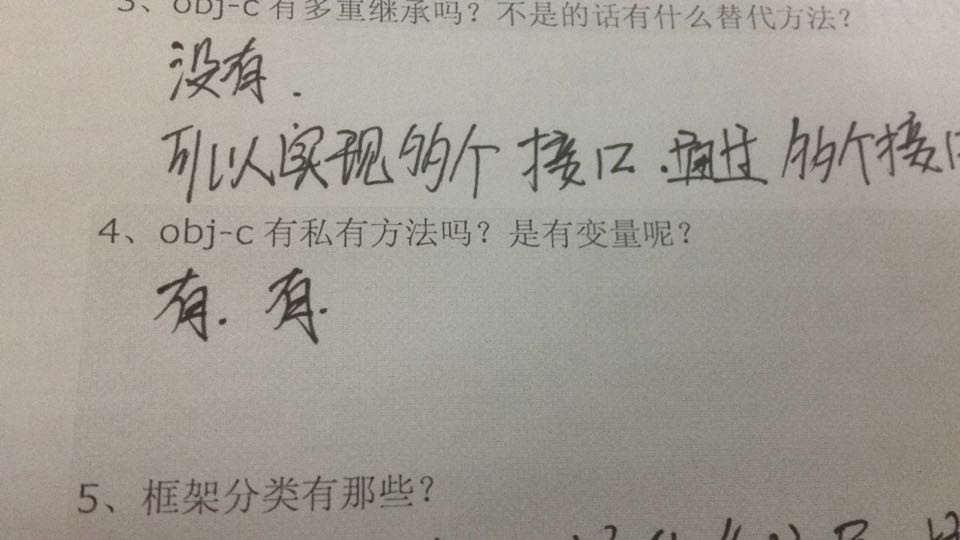 3、obj-c 有多重继承吗？不是的话有什么替代方法？
没有.
可以实现多个接口.通过多个接口
4、obj-c 有私有方法吗？是有变量呢？
有. 有.
5、框架分类有那些？